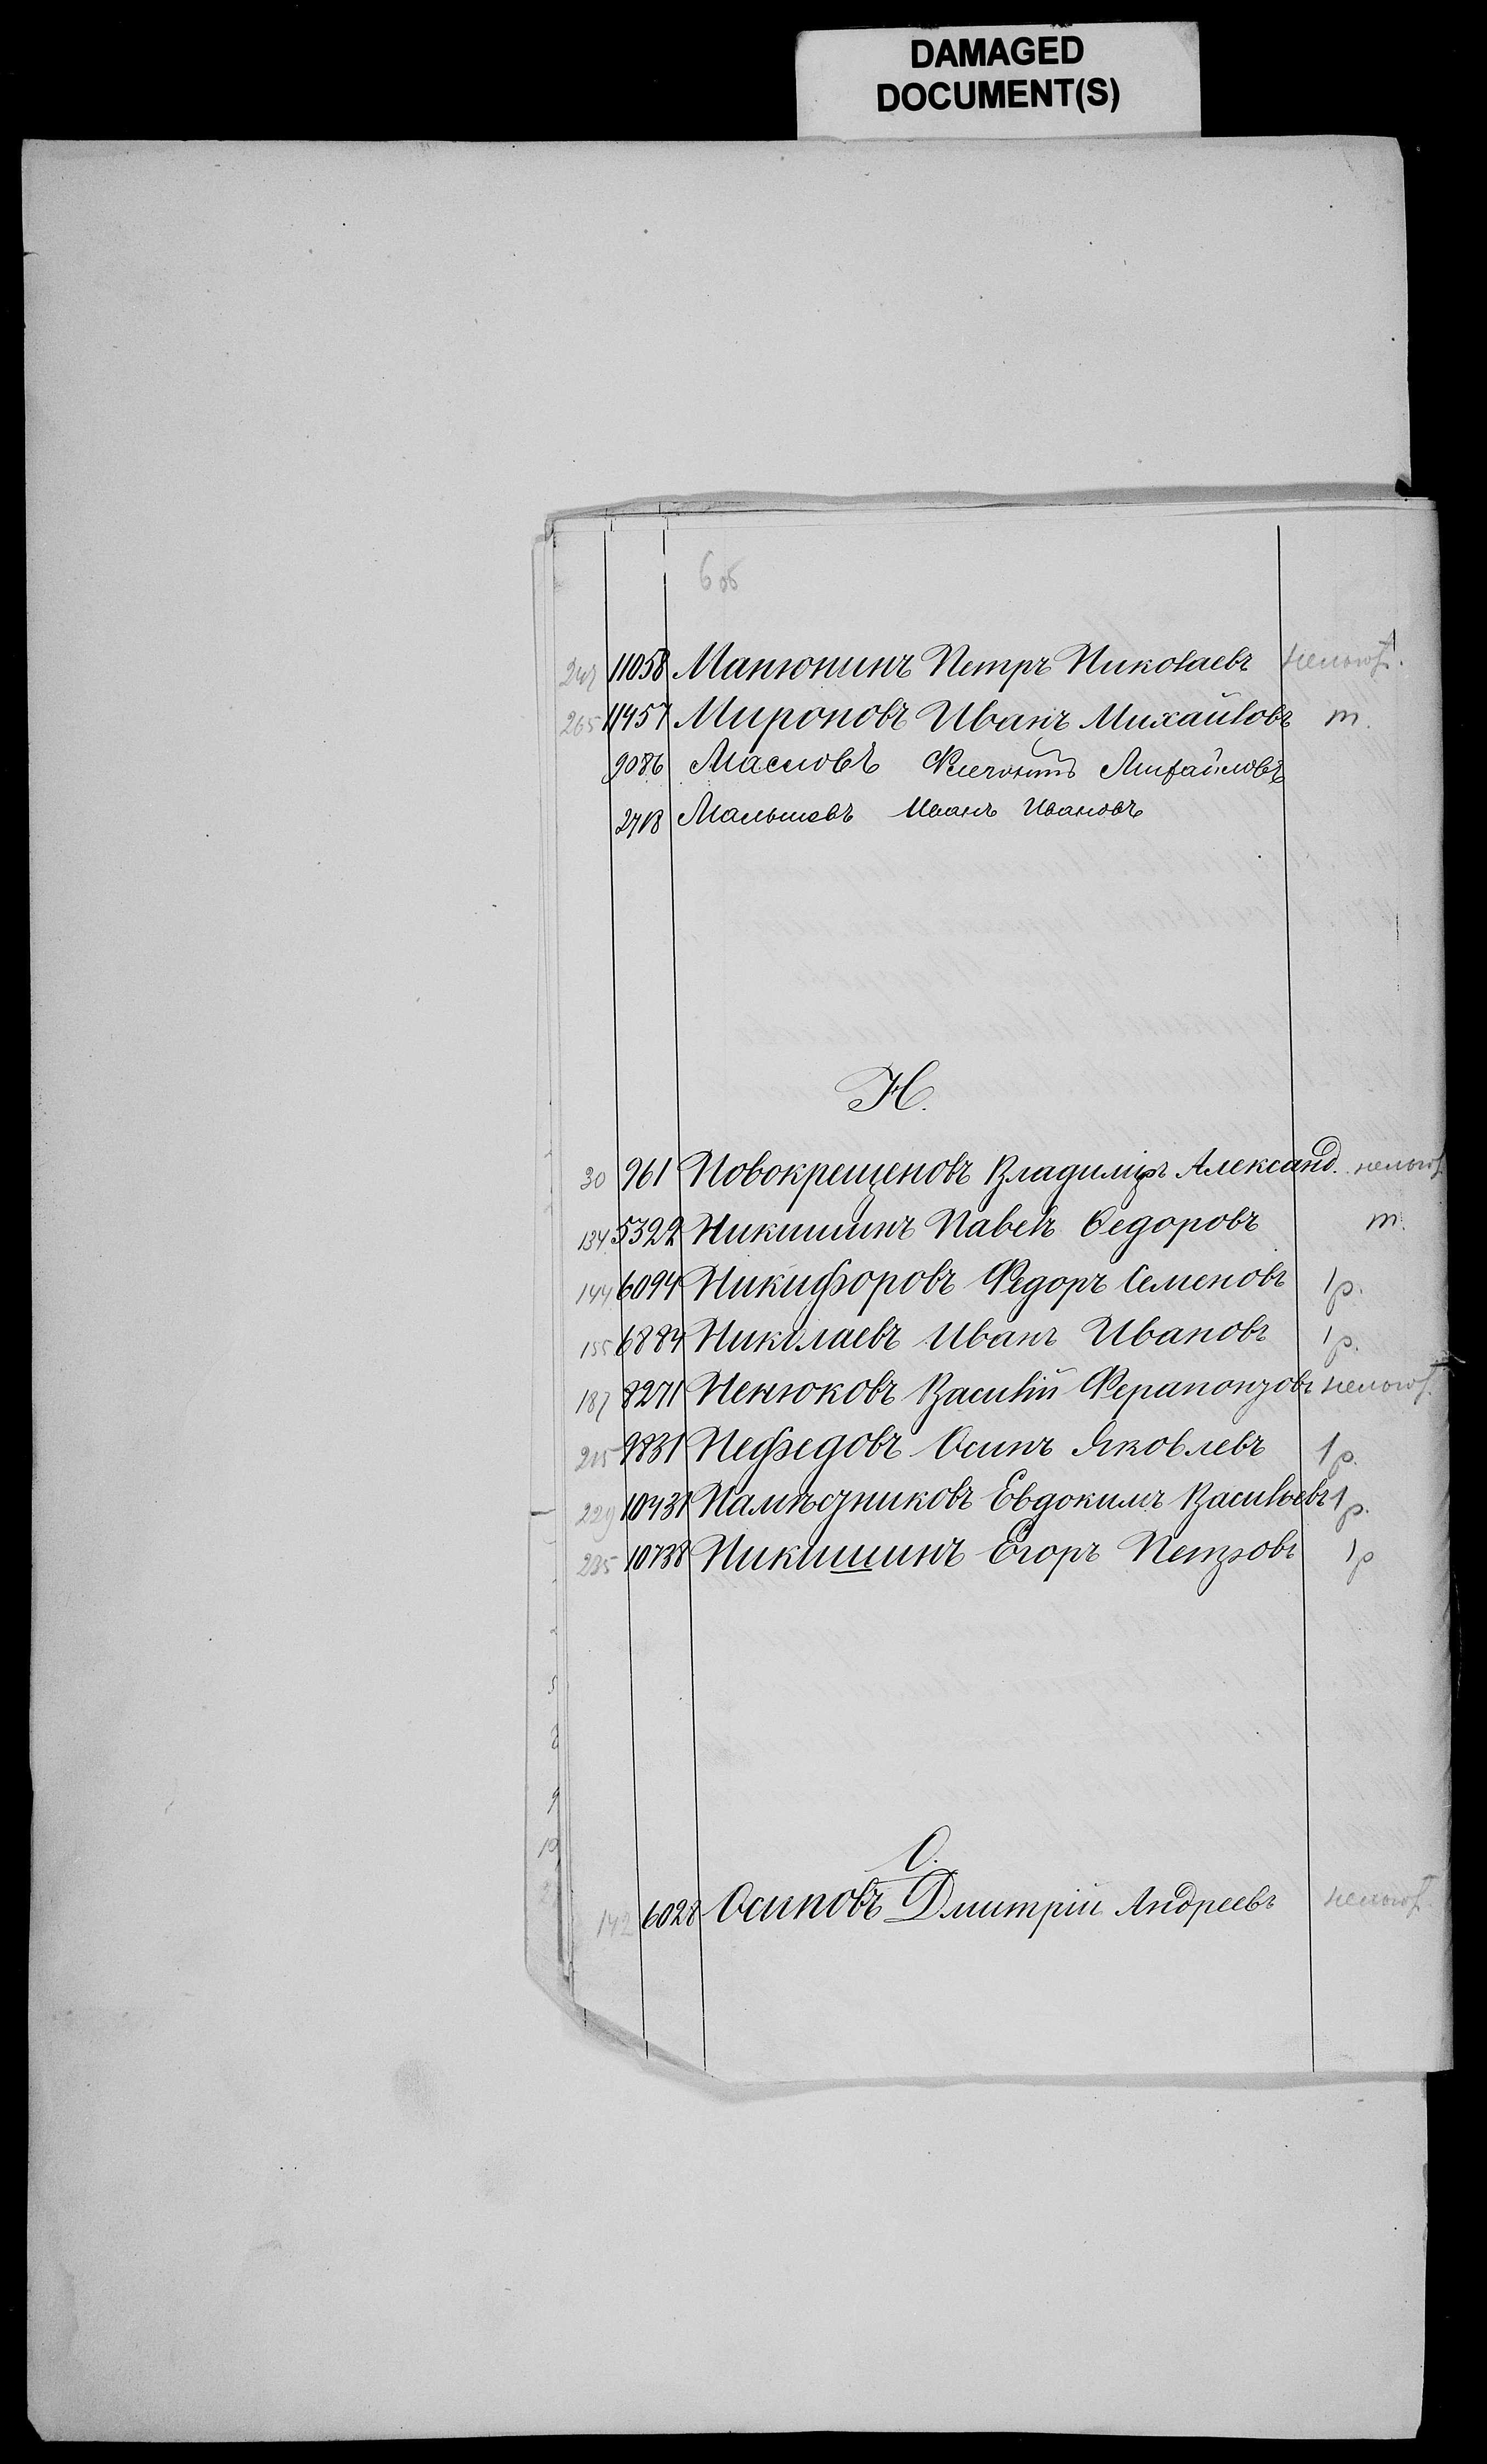 DAMAGED
DOCUMENT(S)
6 об
11058 Матюнинъ Петръ Николаевъ
265 11457 Мироновъ Иванъ Михайловъ т.
9086 Масловъ
2718 Малышевъ Иванъ Ивановъ
Н.
30 961 Новокрещеновъ Владиміръ Александ.
134 5322 Никишинъ Павелъ Ѳедоровъ т.
144 6094 Никифоровъ Федоръ Семеновъ 1р.
155 6884 Николаевъ Иванъ Ивановъ 1р.
187 8271 Ненюковъ Василій Ферапонтовъ
215 9831 Нефедовъ Осипъ Яковлевъ 1р.
229 10431 Намѣстниковъ Евдокимъ Васильевъ 1р.
235 10738 Никишинъ Егоръ Петровъ 1р
О.
142 6028 Осиповъ Дмитрій Андреевъ